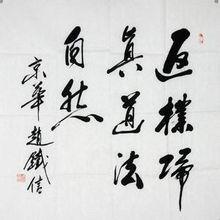 返樸歸
真道法
自然
京華趙鐵信